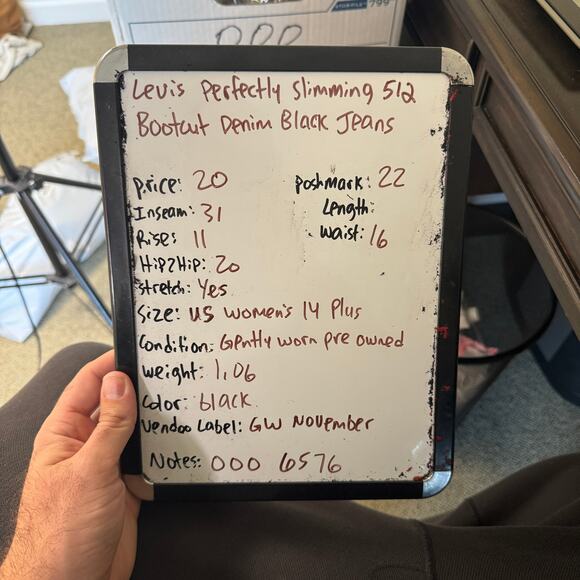 Levis Perfectly Slimming 512
Bootcut Denim Black Jeans
price: 20
poshmark: 22
Inseam: 31
Length:
Rise: 11
Waist: 16
Hip2Hip: 20
Stretch: Yes
Size: US Women's 14 Plus
Condition: Gently worn pre owned
Weight: 1.06
Color: black
Vendoo Label: GW November
Notes: 000 6576